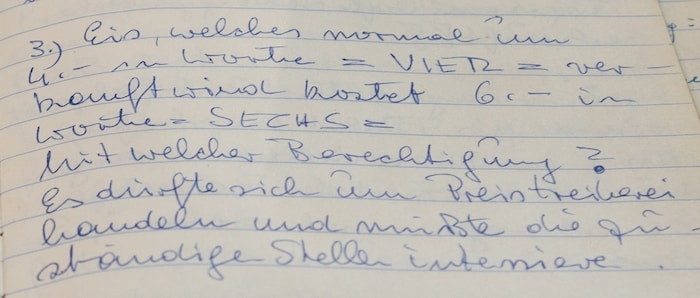 3.) Eis, welches normal um
4.- in Worte = VIER = ver-
kauft wird kostet 6.- in
Worte = SECHS =
Mit welcher Berechtigung?
Es dürfte sich um Preistreiberei
handeln und müßte die zu-
ständige Stelle